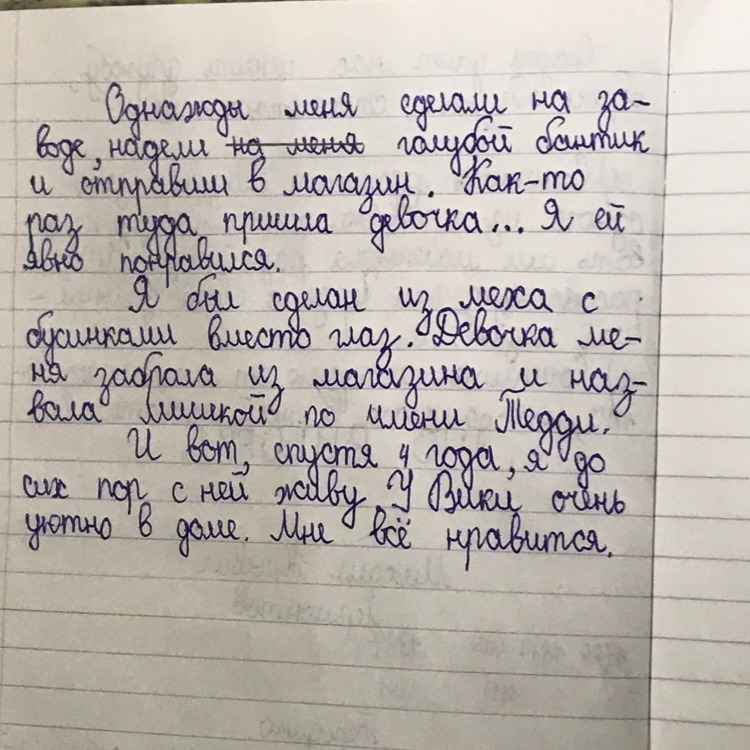 Однажды меня сделали на за-
воде, надели на меня голубой бантик
и отправили в магазин. Как-то
раз туда пришла девочка... Я ей
явно понравился.
Я был сделан из меха с
бусинками вместо глаз. Девочка ме-
ня забрала из магазина и наз-
вала мишкой по имени Тедди.
И вот, спустя 4 года, я до
сих пор с ней живу. У Вики очень
уютно в доме. Мне всё нравится.